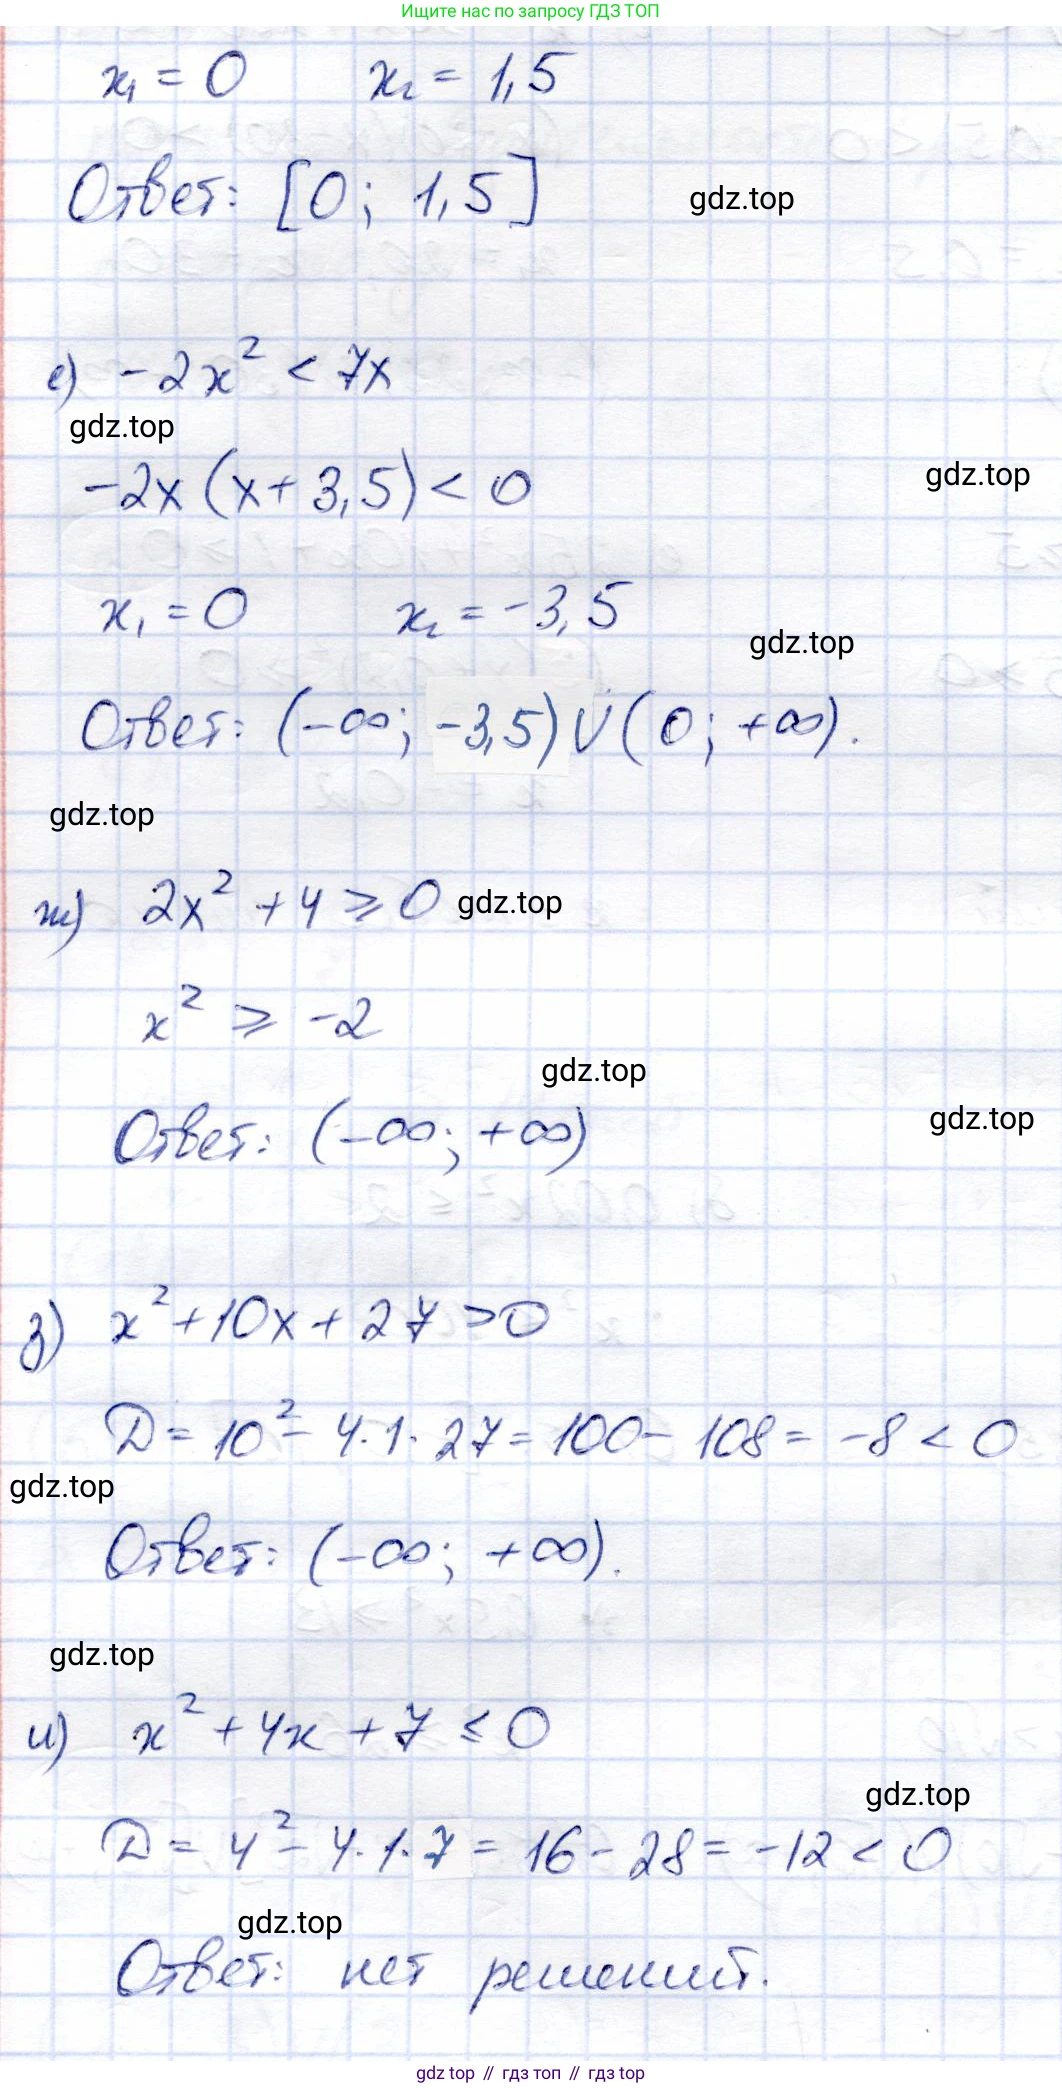 Ищите нас по запросу ГДЗ ТОП
x₁ = 0 x₂ = 1,5
Ответ: [0; 1,5]
gdz.top
е) -2x² < 7x
gdz.top
-2x (x + 3,5) < 0
gdz.top
x₁ = 0 x₂ = -3,5
gdz.top
Ответ: (-∞; -3,5) ∪ (0; +∞).
gdz.top
ж) 2x² + 4 ⩾ 0
gdz.top
x² ⩾ -2
gdz.top
Ответ: (-∞; +∞)
gdz.top
з) x² + 10x + 27 > 0
D = 10² - 4·1·27 = 100 - 108 = -8 < 0
gdz.top
Ответ: (-∞; +∞).
gdz.top
и) x² + 4x + 7 ⩽ 0
gdz.top
D = 4² - 4·1·7 = 16 - 28 = -12 < 0
gdz.top
Ответ: нет решений.
gdz top // гдз топ // гдз top